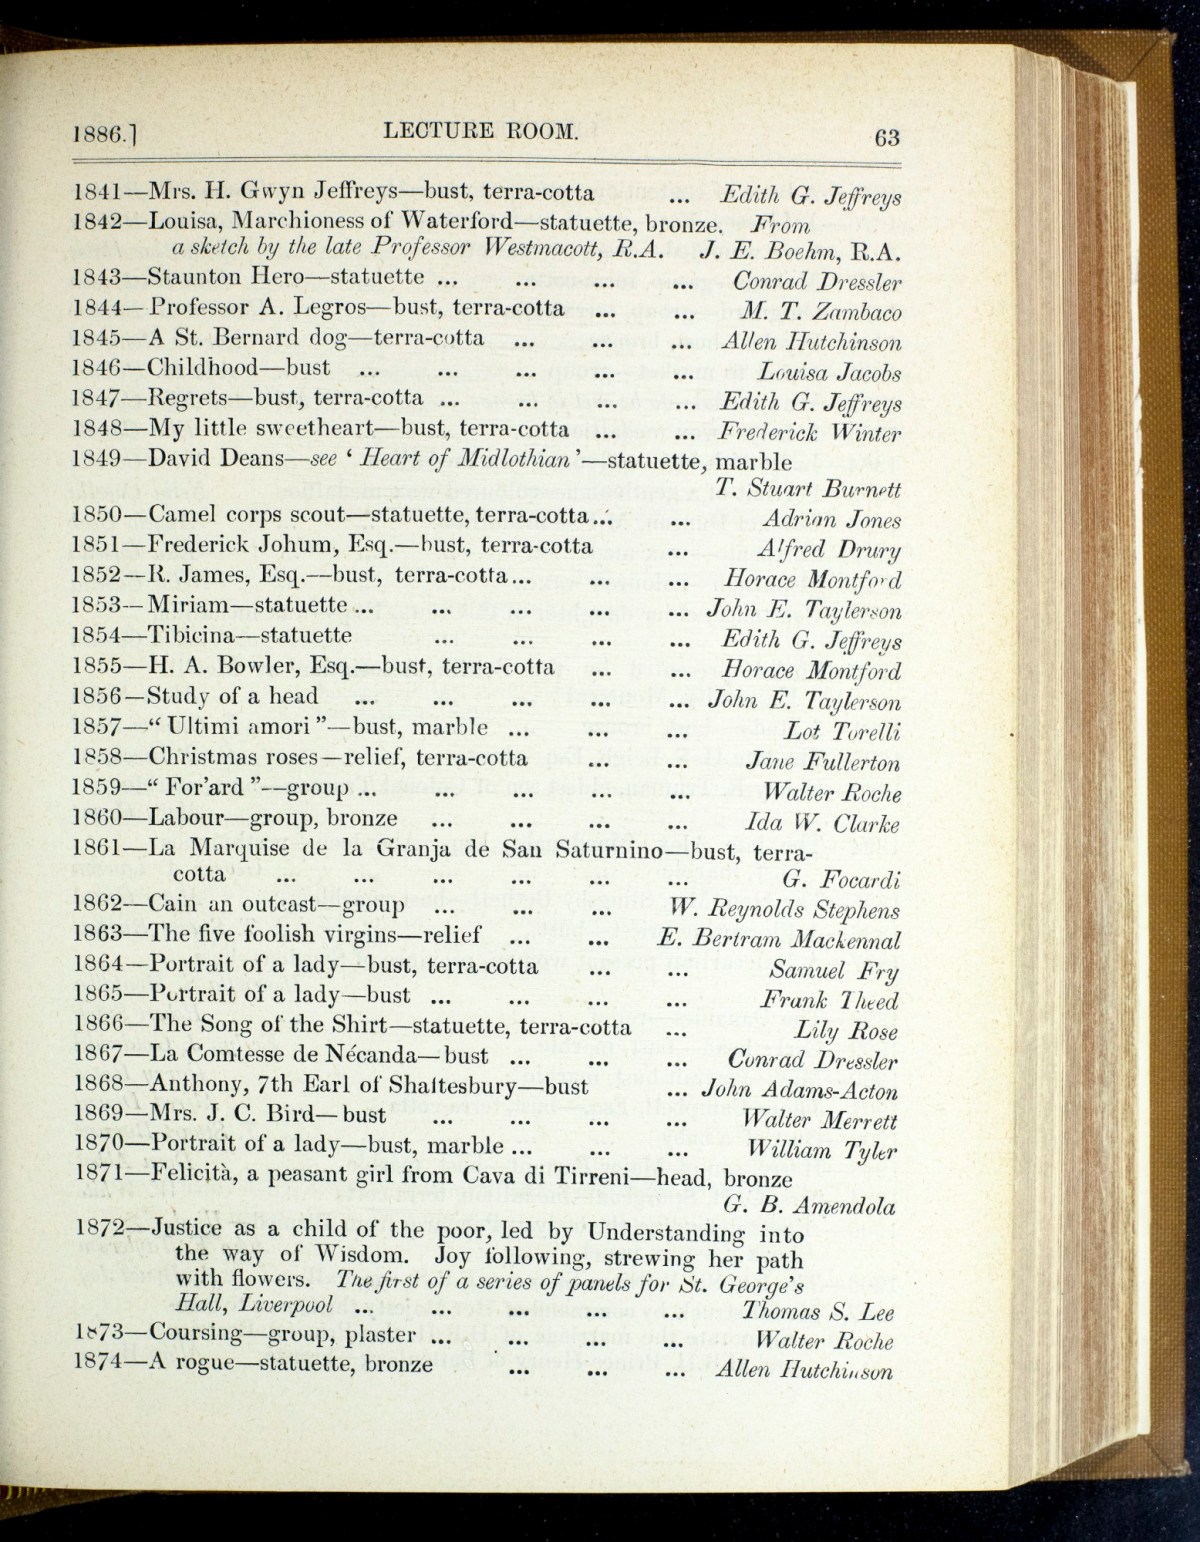 1886.] LECTURE ROOM. 63
1841—Mrs. H. Gwyn Jeffreys—bust, terra-cotta ... Edith G. Jeffreys
1842—Louisa, Marchioness of Waterford—statuette, bronze. From
a sketch by the late Professor Westmacott, R.A. J. E. Boehm, R.A.
1843—Staunton Hero—statuette ... ... ... ... Conrad Dressler
1844—Professor A. Legros—bust, terra-cotta ... ... M. T. Zambaco
1845—A St. Bernard dog—terra-cotta ... ... ... Allen Hutchinson
1846—Childhood—bust ... ... ... ... ... Louisa Jacobs
1847—Regrets—bust, terra-cotta ... ... ... ... Edith G. Jeffreys
1848—My little sweetheart—bust, terra-cotta ... ... Frederick Winter
1849—David Deans—see ‘ Heart of Midlothian ’—statuette, marble
T. Stuart Burnett
1850—Camel corps scout—statuette, terra-cotta... ... Adrian Jones
1851—Frederick Johum, Esq.—bust, terra-cotta ... Alfred Drury
1852—R. James, Esq.—bust, terra-cotta... ... ... Horace Montford
1853—Miriam—statuette ... ... ... ... ... John E. Taylerson
1854—Tibicina—statuette ... ... ... ... Edith G. Jeffreys
1855—H. A. Bowler, Esq.—bust, terra-cotta ... ... Horace Montford
1856—Study of a head ... ... ... ... ... John E. Taylerson
1857—“ Ultimi amori ”—bust, marble ... ... ... Lot Torelli
1858—Christmas roses—relief, terra-cotta ... ... Jane Fullerton
1859—“ For'ard ”—group ... ... ... ... ... Walter Roche
1860—Labour—group, bronze ... ... ... ... Ida W. Clarke
1861—La Marquise de la Granja de San Saturnino—bust, terra-
cotta ... ... ... ... ... ... G. Focardi
1862—Cain an outcast—group ... ... ... W. Reynolds Stephens
1863—The five foolish virgins—relief ... ... E. Bertram Mackennal
1864—Portrait of a lady—bust, terra-cotta ... ... Samuel Fry
1865—Portrait of a lady—bust ... ... ... ... Frank Theed
1866—The Song of the Shirt—statuette, terra-cotta ... Lily Rose
1867—La Comtesse de Nécanda—bust ... ... ... Conrad Dressler
1868—Anthony, 7th Earl of Shaftesbury—bust ... John Adams-Acton
1869—Mrs. J. C. Bird—bust ... ... ... ... Walter Merrett
1870—Portrait of a lady—bust, marble ... ... ... William Tyler
1871—Felicità, a peasant girl from Cava di Tirreni—head, bronze
G. B. Amendola
1872—Justice as a child of the poor, led by Understanding into
the way of Wisdom. Joy following, strewing her path
with flowers. The first of a series of panels for St. George's
Hall, Liverpool ... ... ... ... ... Thomas S. Lee
1873—Coursing—group, plaster ... ... ... ... Walter Roche
1874—A rogue—statuette, bronze ... ... ... Allen Hutchinson